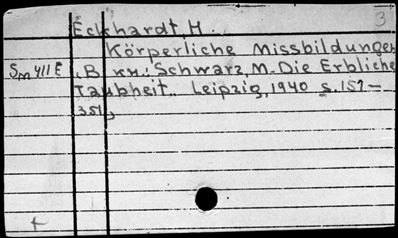 3
Eckhardt, H.
Körperliche Missbildungen
Sm 411 E
. Schwarz, M. Die Erbliche
Taubheit. Leipzig, 1940 s. 157—
351,